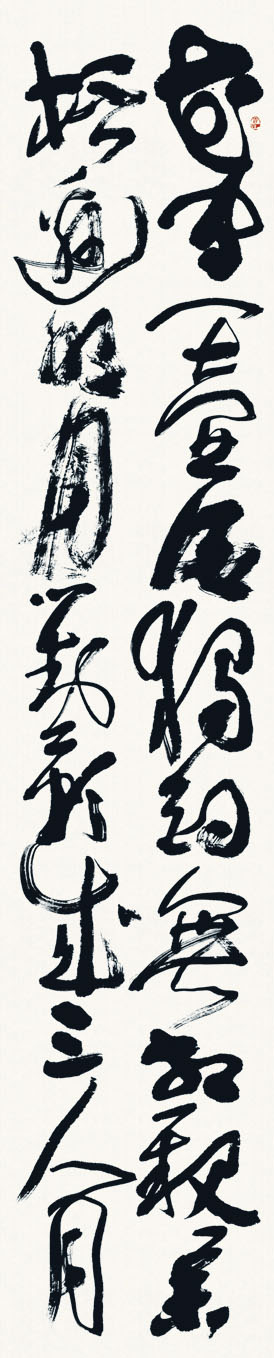 花間一壺酒獨酌無相親舉
杯邀明月對影成三人月